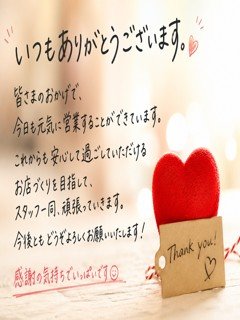 いつもありがとうございます。
皆さまのおかげで、
今日も元気に営業することができています。
これからも安心して過ごしていただける
お店づくりを目指して、
スタッフ一同、頑張っていきます。
今後ともどうぞよろしくお願いいたします!
感謝の気持ちでいっぱいです
Thank you!